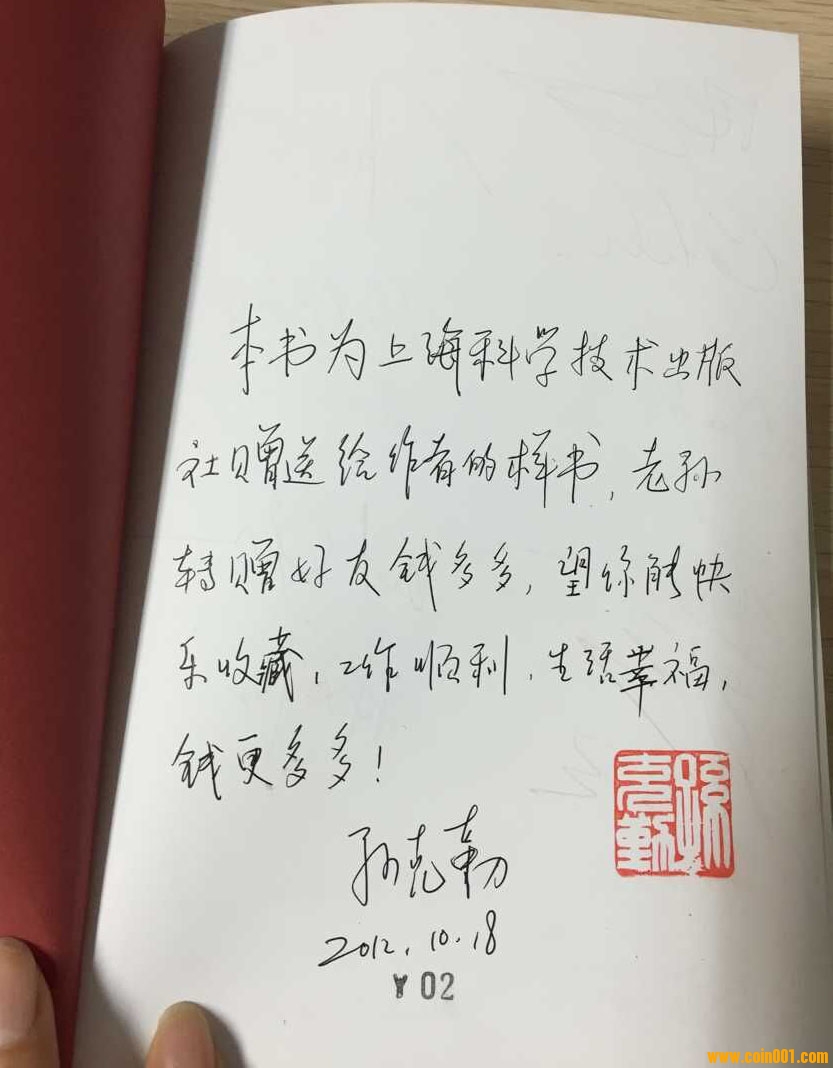 本书为上海科学技术出版
社赠送给作者的样书,老孙
转赠好友钱多多,望你能快
乐收藏,工作顺利,生活幸福,
钱更多多!
孙克勤
孙克勤
2012.10.18
02
www.coin001.com